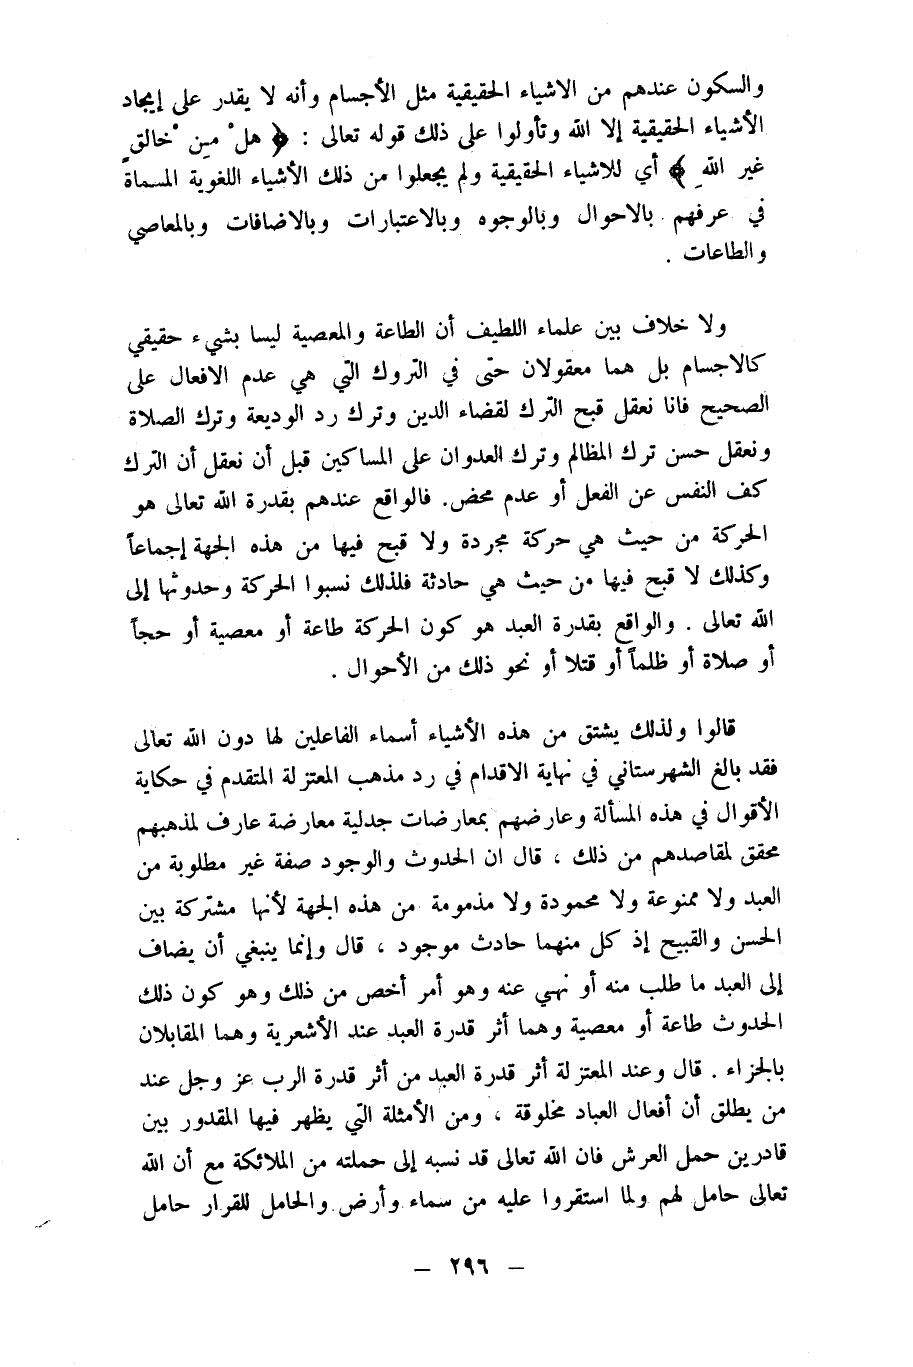 والسكون عندهم من الاشياء الحقيقية مثل الأجسام وأنه لا يقدر على إيجاد
الأشياء الحقيقية إلا الله وتأولوا على ذلك قوله تعالى : ﴿ هلْ مِن ْخالقٍ
غير اللهِ ﴾ أي للاشياء الحقيقية ولم يجعلوا من ذلك الأشياء اللغوية المسماة
في عرفهم بالاحوال وبالوجوه وبالاعتبارات وبالاضافات وبالمعاصي
والطاعات .
ولا خلاف بين علماء اللطيف أن الطاعة والمعصية ليسا بشيء حقيقي
كالاجسام بل هما معقولان حتى في التروك التي هي عدم الافعال على
الصحيح فانا نعقل قبح الترك لقضاء الدين وترك رد الوديعة وترك الصلاة
ونعقل حسن ترك المظالم وترك العدوان على المساكين قبل أن نعقل أن الترك
كف النفس عن الفعل أو عدم محض. فالواقع عندهم بقدرة الله تعالى هو
الحركة من حيث هي حركة مجردة ولا قبح فيها من هذه الجهة إجماعاً
وكذلك لا قبح فيها من حيث هي حادثة فلذلك نسبوا الحركة وحدوثها إلى
الله تعالى . والواقع بقدرة العبد هو كون الحركة طاعة أو معصية أو حجاً
أو صلاة أو ظلماً أو قتلا أو نحو ذلك من الأحوال .
قالوا ولذلك يشتق من هذه الأشياء أسماء الفاعلين لها دون الله تعالى
فقد بالغ الشهرستاني في نهاية الاقدام في رد مذهب المعتزلة المتقدم في حكاية
الأقوال في هذه المسألة وعارضهم بمعارضات جدلية معارضة عارف لمذهبهم
محقق لمقاصدهم من ذلك ، قال ان الحدوث والوجود صفة غير مطلوبة من
العبد ولا ممنوعة ولا محمودة ولا مذمومة من هذه الجهة لأنها مشتركة بين
الحسن والقبيح إذ كل منهما حادث موجود ، قال وإنما ينبغي أن يضاف
إلى العبد ما طلب منه أو نهي عنه وهو أمر أخص من ذلك وهو كون ذلك
الحدوث طاعة أو معصية وهما أثر قدرة العبد عند الأشعرية وهما المقابلان
بالجزاء . قال وعند المعتزلة أثر قدرة العبد من أثر قدرة الرب عز وجل عند
من يطلق أن أفعال العباد مخلوقة ، ومن الأمثلة التي يظهر فيها المقدور بين
قادرين حمل العرش فان الله تعالى قد نسبه إلى حملته من الملائكة مع أن الله
تعالى حامل لهم ولما استقروا عليه من سماء وأرض والحامل للقرار حامل
– ٢٩٦ –